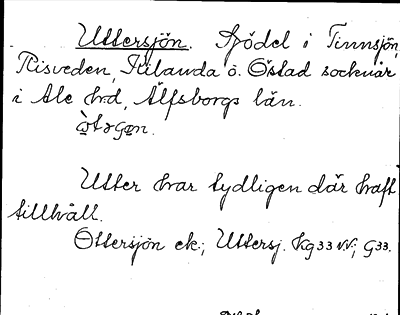 Uttersjön. Sjödel i Tinnsjön,
Risveden, Skilanda o. Östad socknar
i Ale hrd, Älfsborgs län.
Utter har tydligen där haft
tillhåll.
Ottersjön ek.; Uttersj. Kg 33 N.V.; G 33.